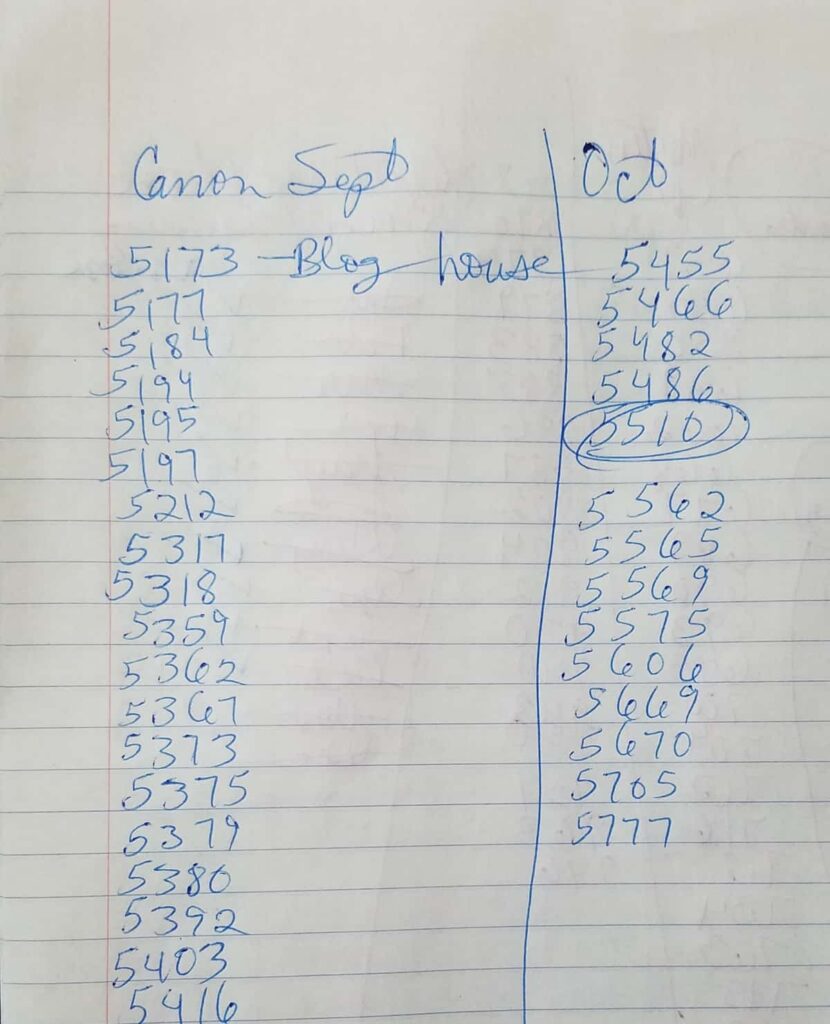 Canon Sept
5173 - Blog house
5177
5184
5194
5195
5197
5212
5317
5318
5359
5362
5367
5373
5375
5379
5380
5392
5403
5416
Oct
5455
5466
5482
5486
5510
5562
5565
5569
5575
5606
5669
5670
5705
5777